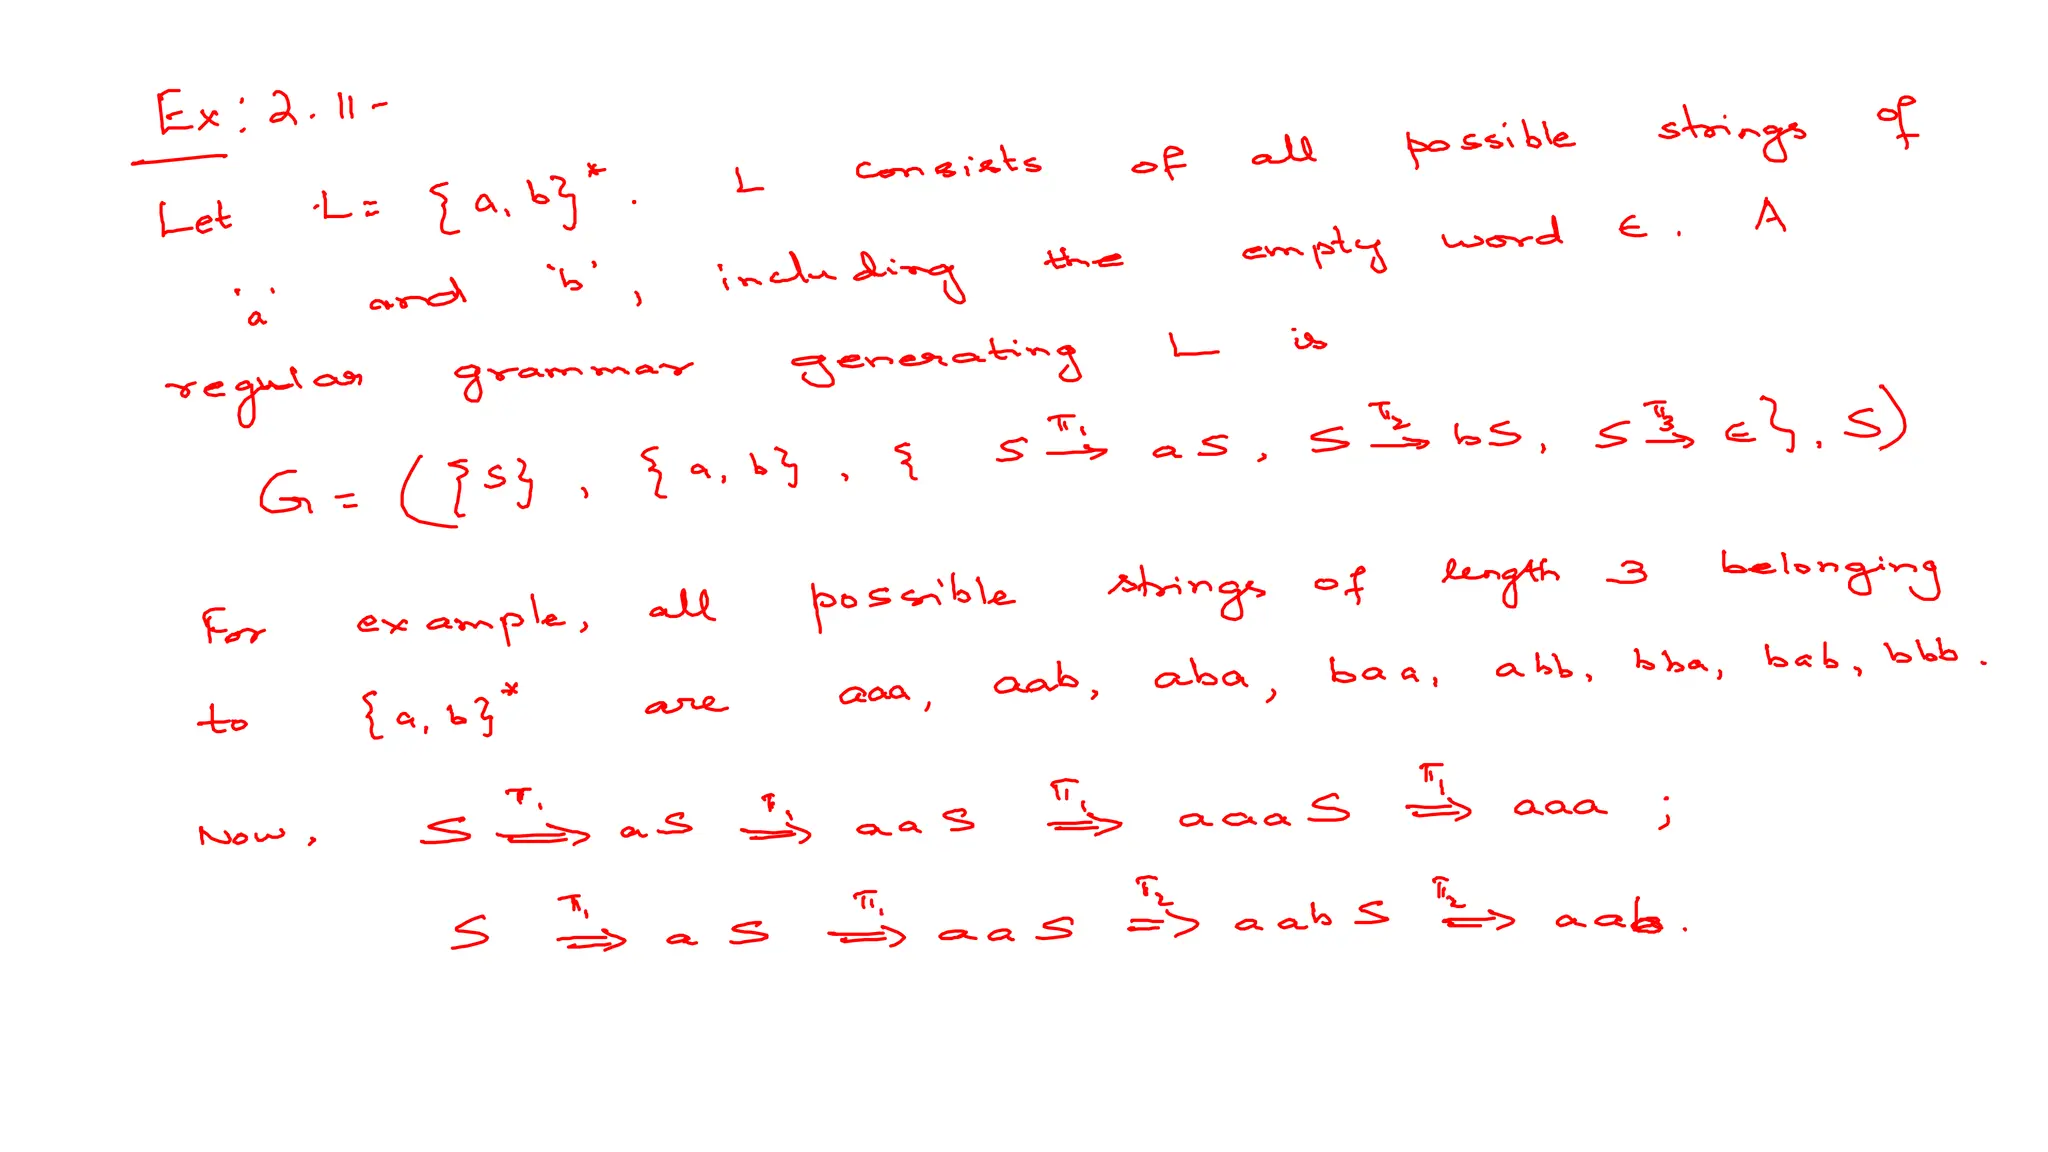 Ex: 2.11-
Let L = {a, b}*. L consists of all possible strings of
'a' and 'b', including the empty word ∈. A
regular grammar generating L is
G = ({S}, {a, b}, { S →^π₁ aS, S →^π₂ bS, S →^π₃ ∈}, S)
For example, all possible strings of length 3 belonging
to {a, b}* are aaa, aab, aba, baa, abb, bba, bab, bbb.
Now, S ⇒^π₁ aS ⇒^π₁ aaS ⇒^π₁ aaaS ⇒^π₁ aaa ;
S ⇒^π₁ aS ⇒^π₁ aaS ⇒^π₂ aabS ⇒^π₂ aab.